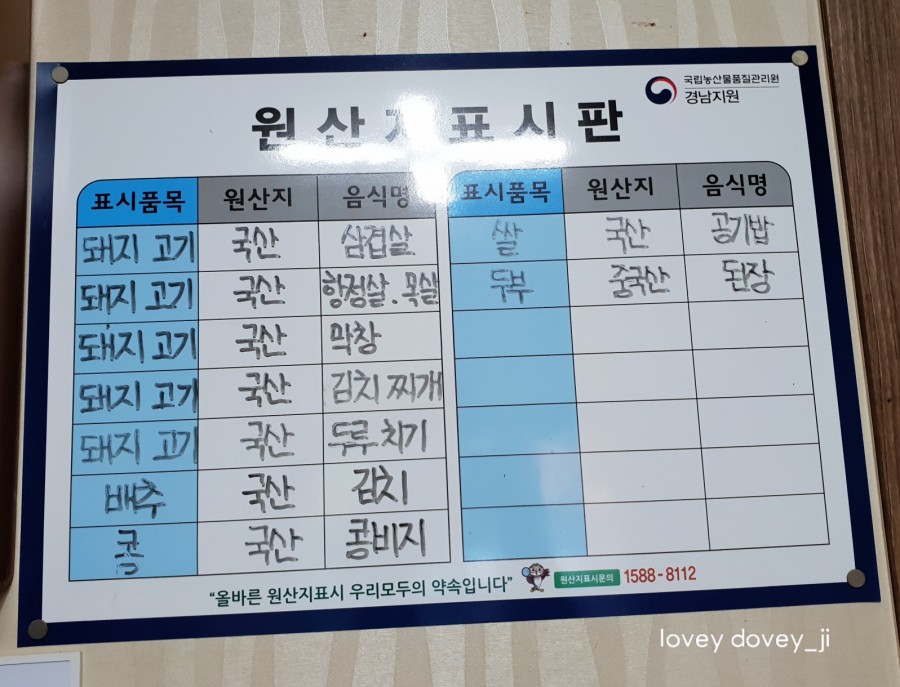 국립농산물품질관리원
경남지원
원산지표시판
표시품목 원산지 음식명
돼지 고기 국산 삼겹살
돼지 고기 국산 항정살.목살
돼지 고기 국산 막창
돼지 고기 국산 김치찌개
돼지 고기 국산 두루치기
배추 국산 김치
콩 국산 콩비지
표시품목 원산지 음식명
쌀 국산 공기밥
두부 중국산 된장
"올바른 원산지표시 우리모두의 약속입니다"
원산지표시문의 1588-8112
lovey dovey_ji